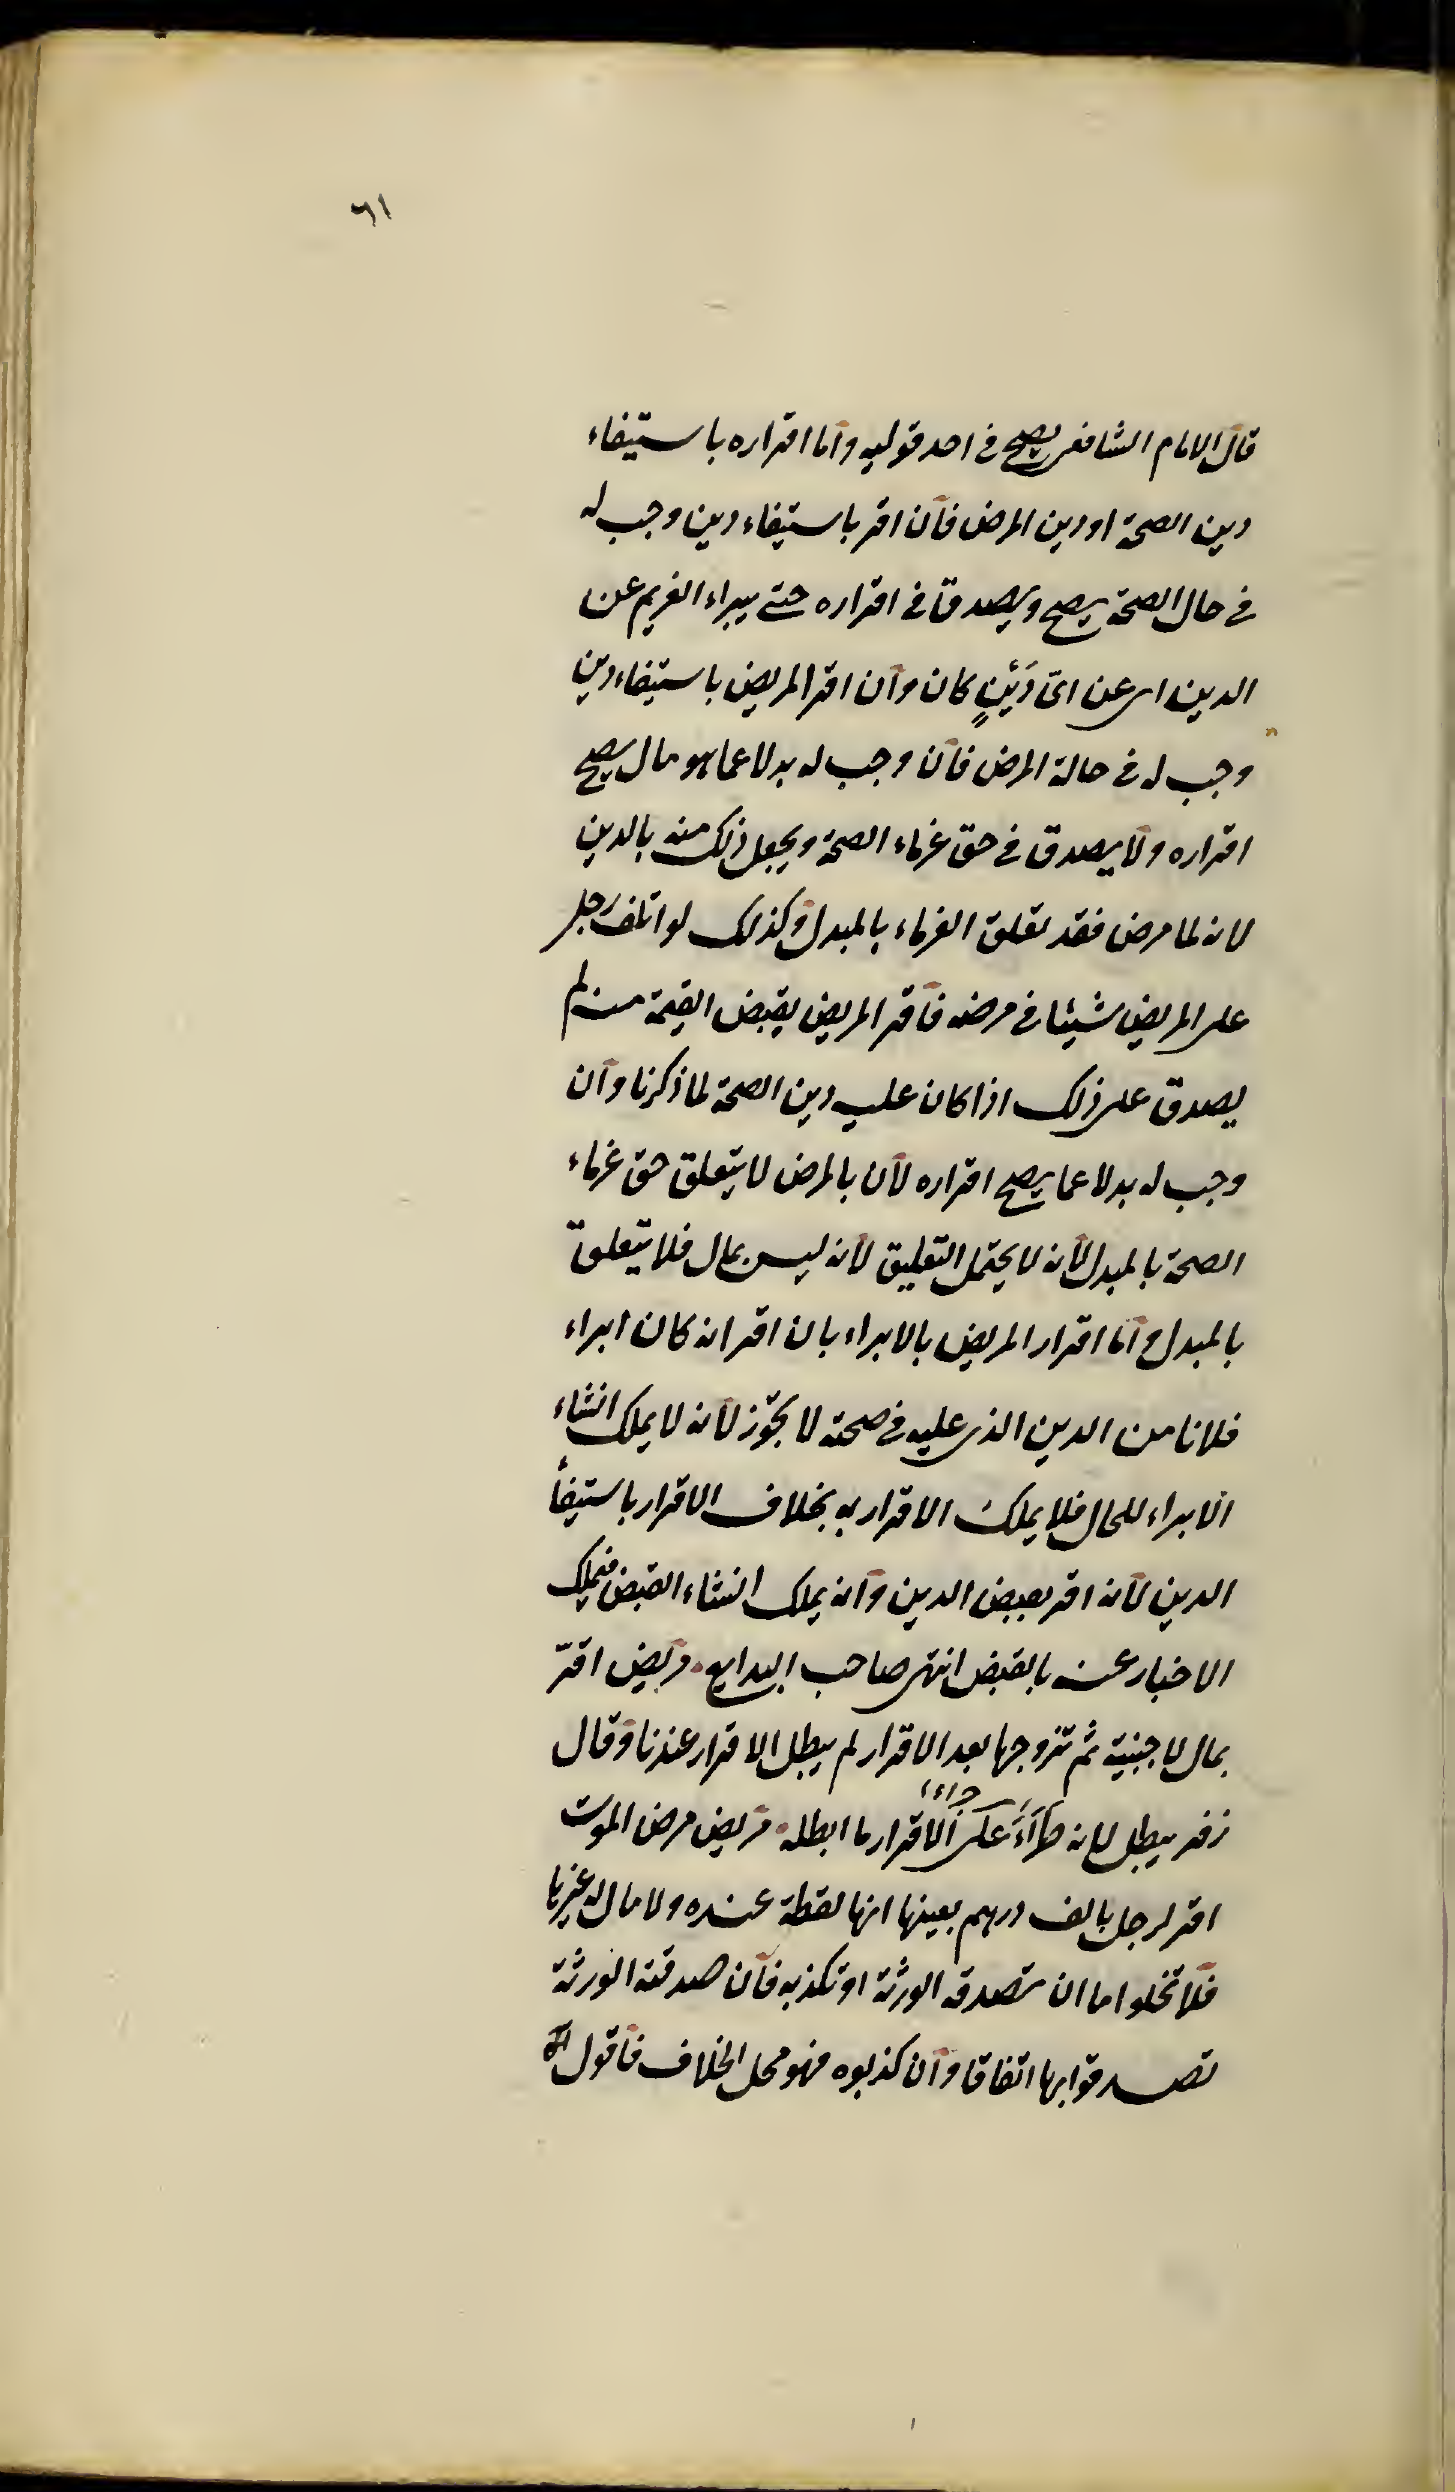 ٦١
قال الامام الشافعى يصح فى احد قوليه واما اقراره باستيفاء
دين الصحة او دين المرض فان اقر باستيفاء دين وجب له
فى حال الصحة يصح ويصدق فى اقراره حتى يبراء الغريم عن
الدين اى عن اىّ دَيْنٍ كان وان اقر المريض باستيفاء دين
وجب له فى حالة المرض فان وجب له بدلا عما هو مال يصح
اقراره ولا يصدق فى حق غرماء الصحة ويجعل ذلك منه بالدين
لانه لما مرض فقد تعلق الغرماء بالمبدل وكذلك لو اتلف رجل
على المريض شيئا فى مرضه فاقر المريض يقبض القيمة منه لم
يصدق على ذلك اذا كان عليه دين الصحة لما ذكرنا وان
وجب له بدلا عما يصح اقراره لان بالمرض لا يتعلق حق غرماء
الصحة بالمبدل لانه لا يحتمل التعليق لانه ليس بمال فلا يتعلق
بالمبدل واما اقرار المريض بالابراء بان اقر انه كان ابراء
فلانا من الدين الذى عليه فى صحته لا يجوز لانه لا يملك انشاء
الابراء للحال فلا يملك الاقرار به بخلاف الاقرار باستيفأ
الدين لانه اقر بقبض الدين وانه يملك انشاء القبض فيملك
الاخبار عنه بالقبض انتهى صاحب البدايع مريض اقرّ
بمال لاجنبية ثم تزوجها بعد الاقرار لم يبطل الاقرار عندنا وقال
زفر يبطل لانه طرآءَ على الاقرار ما ابطله مريض مرض الموت
اقر لرجل بالف درهم بعينها انها لقطة عنده ولا مال له غيرها
فلا تخلوا اما ان تصدقه الورثة او تكذبه فان صدقته الورثة
تصدقوا بها اتفاقا وان كذبوه فهو محل الخلاف فاقول